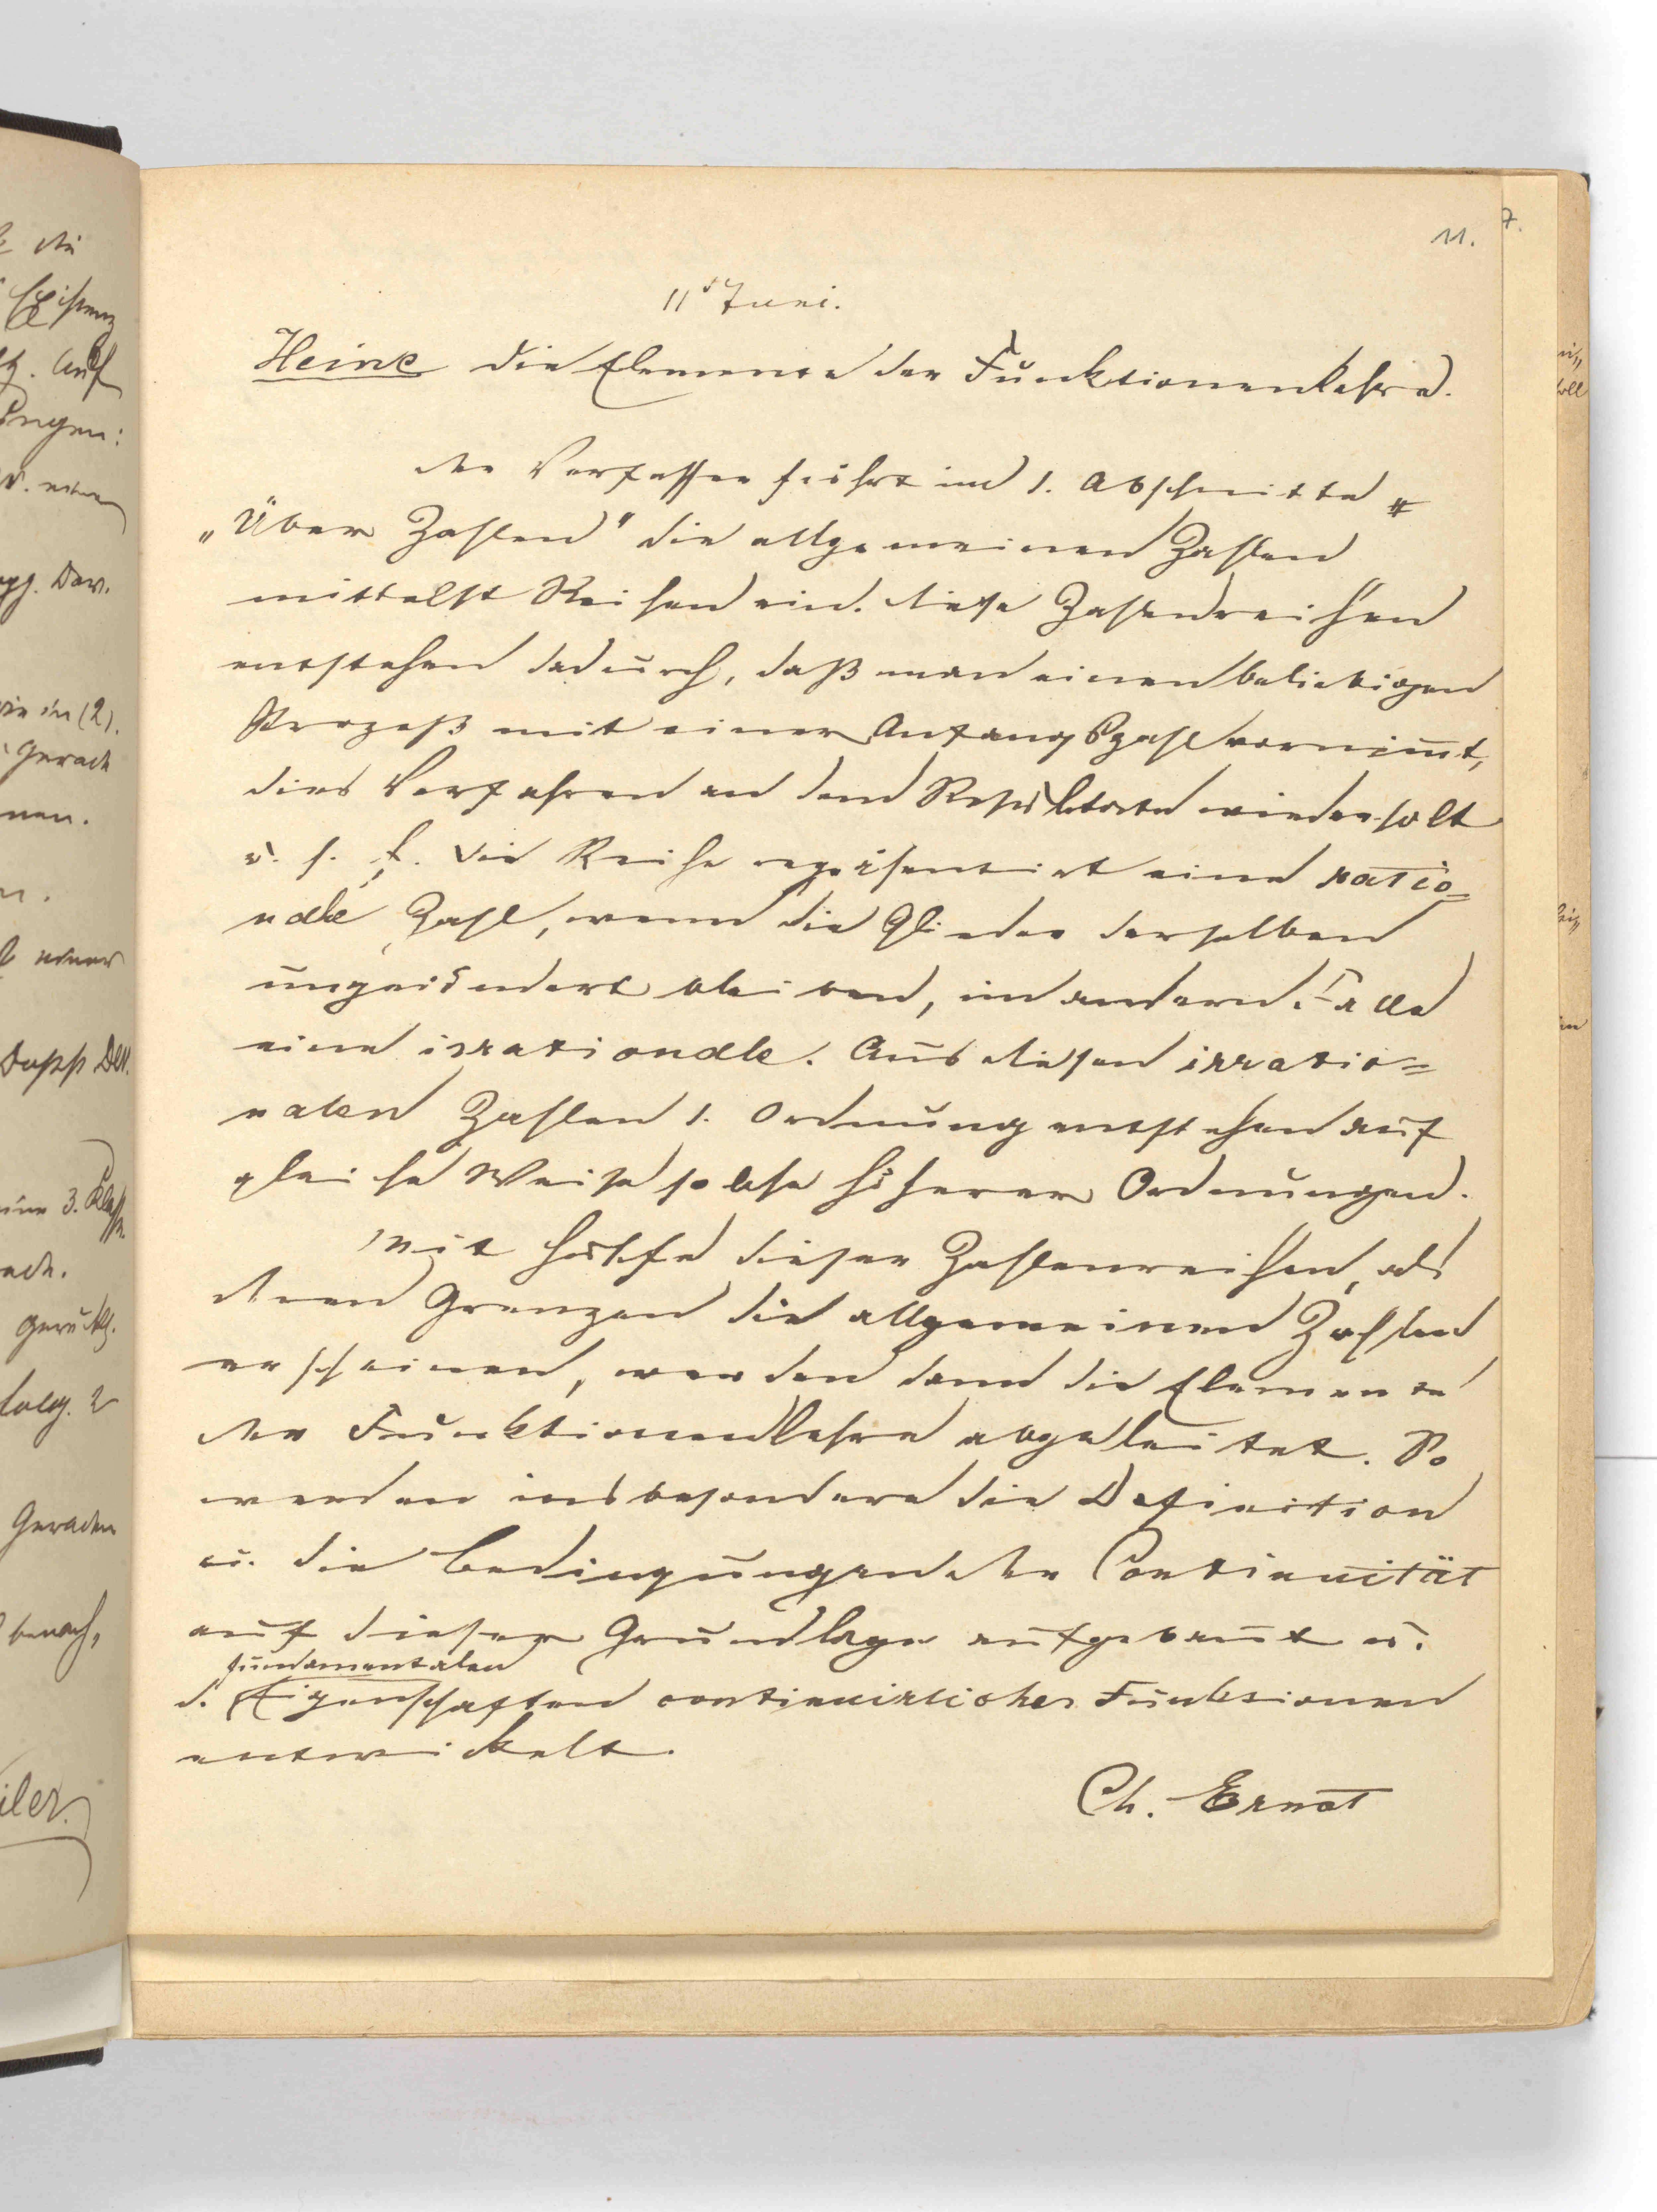 11.
7.
11t Juni.
Heine die Elemente der Funktionenlehre.
Der Verfasser führt im 1. Abschnitte
„Über Zahlen" die allgemeinen Zahlen
mittelst Reihen ein. Diese Zahlenreihen
entstehen dadurch, daß man einen beliebigen
Prozeß mit einer Anfangszahl vornim̅t,
dies Verfahren an dem Resultate wiederholt
u. s. f. Die Reihe repräsentirt eine ratio=
nale Zahl, wenn die Glieder derselben
ungeändert bleiben, im andern Falle
eine irrationale. Aus diesen irratio=
nalen Zahlen 1. Ordnung entstehen auf
gleiche Weise solche höherer Ordnungen.
Mit Hülfe dieser Zahlenreihen, als
deren Grenzen die allgemeinen Zahlen
erscheinen, werden dann die Elemente
der Funktionenlehre abgeleitet. So
werden insbesondere die Definition
u. die Bedingungen der Continuität
auf dieser Grundlage aufgebaut u.
fundamentalen
d. Eigenschaften continuirlicher Funktionen
entwickelt.
Ch. Ernst
die
Existenz
Auf
ungen:
wie in (2).
Gerade
nen.
eine 3. Klasse
Geraden